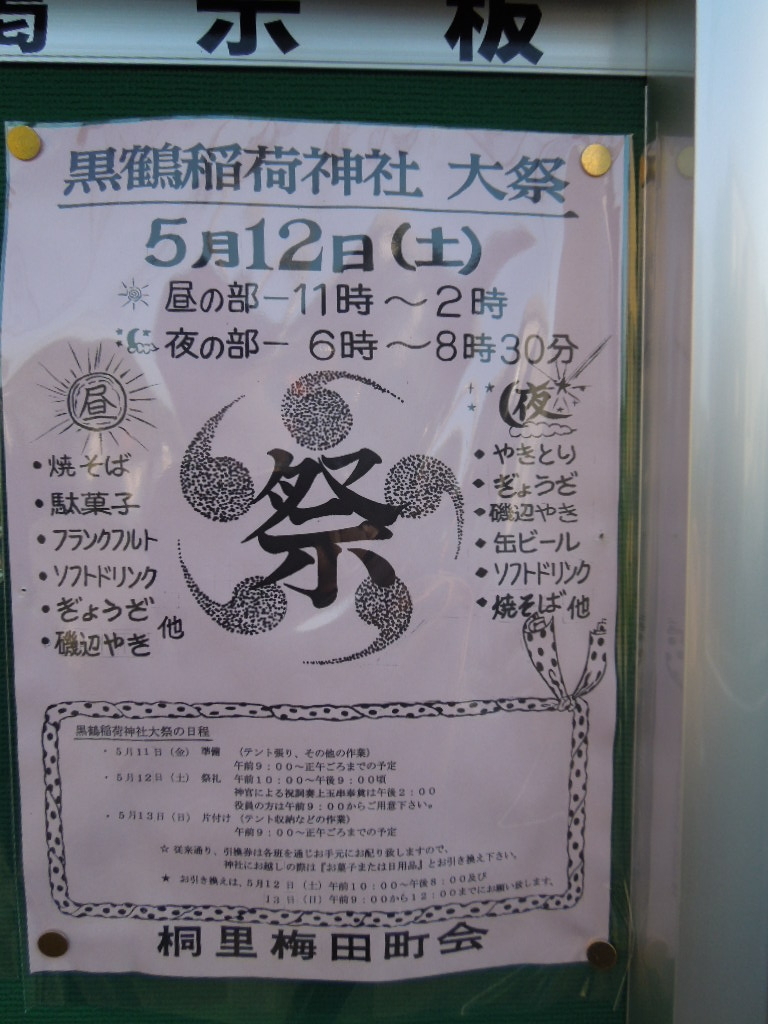 示板
黒鶴稲荷神社 大祭
5月12日(土)
昼の部-11時～2時
夜の部- 6時～8時30分
昼
・焼そば
・駄菓子
・フランクフルト
・ソフトドリンク
・ぎょうざ
・磯辺やき 他
祭
夜
・やきとり
・ぎょうざ
・磯辺やき
・缶ビール
・ソフトドリンク
・焼そば 他
黒鶴稲荷神社大祭の日程
・5月11日(金) 準備 (テント張り、その他の作業)
午前9:00～正午ごろまでの予定
・5月12日(土) 祭礼 午前10:00～午後9:00頃
神官による祝詞奏上玉串奉奠は午後2:00
役員の方は午前9:00からご用意下さい。
・5月13日(日) 片付け (テント収納などの作業)
午前9:00～正午ごろまでの予定
☆ 従来通り、引換券は各班を通じお手元にお配り致しますので、
神社にお越しの際は『お菓子または日用品』とお引き換え下さい。
★ お引き換えは、5月12日(土)午前10:00～午後8:00及び
13日(日)午前9:00から12:00までにお願い致します。
桐里梅田町会